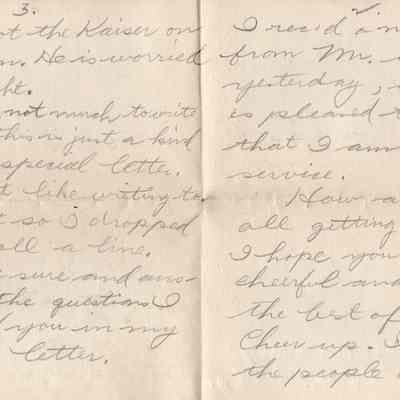 3.
ot the Kaiser on
n. He is worried
ht.
not much to write
this is just a kind
special letter.
t like writing to-
t so I dropped
all a line.
sure and ans-
the questions I
you in my
letter.
2
I rec'd an
from Mr.
yesterday,
is pleased t
that I am
service.
How a
all getting
I hope you
cheerful and
the best of
Cheer up. I
the people